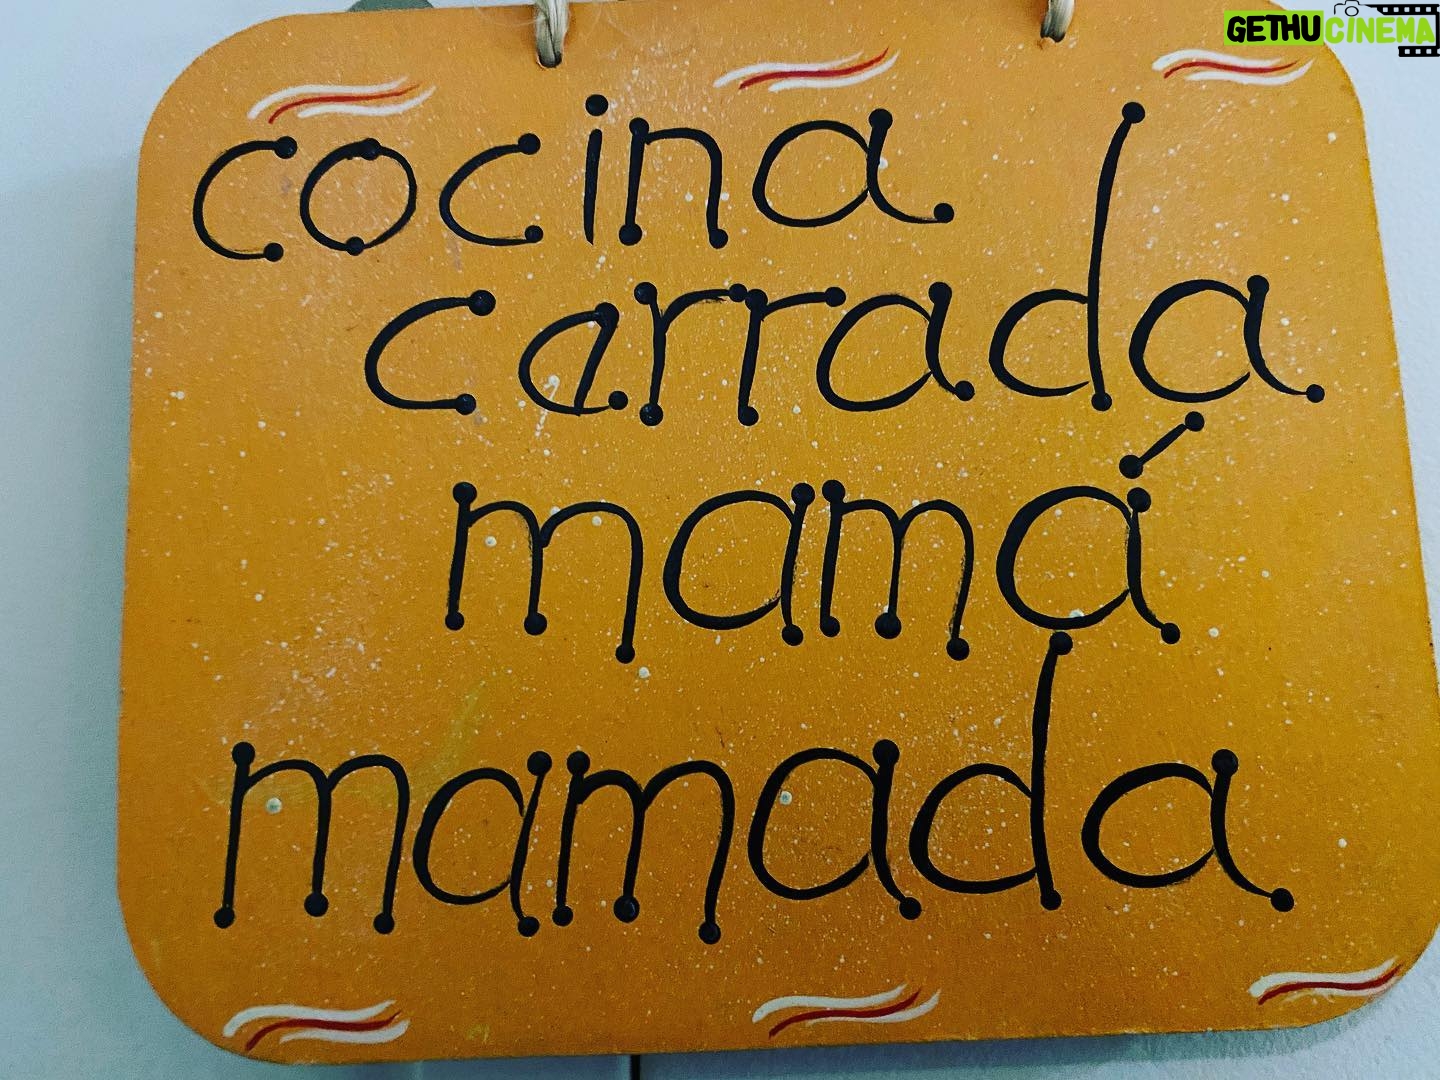 GETHUCINEMA
cocina
cerrada
mamá
mamada